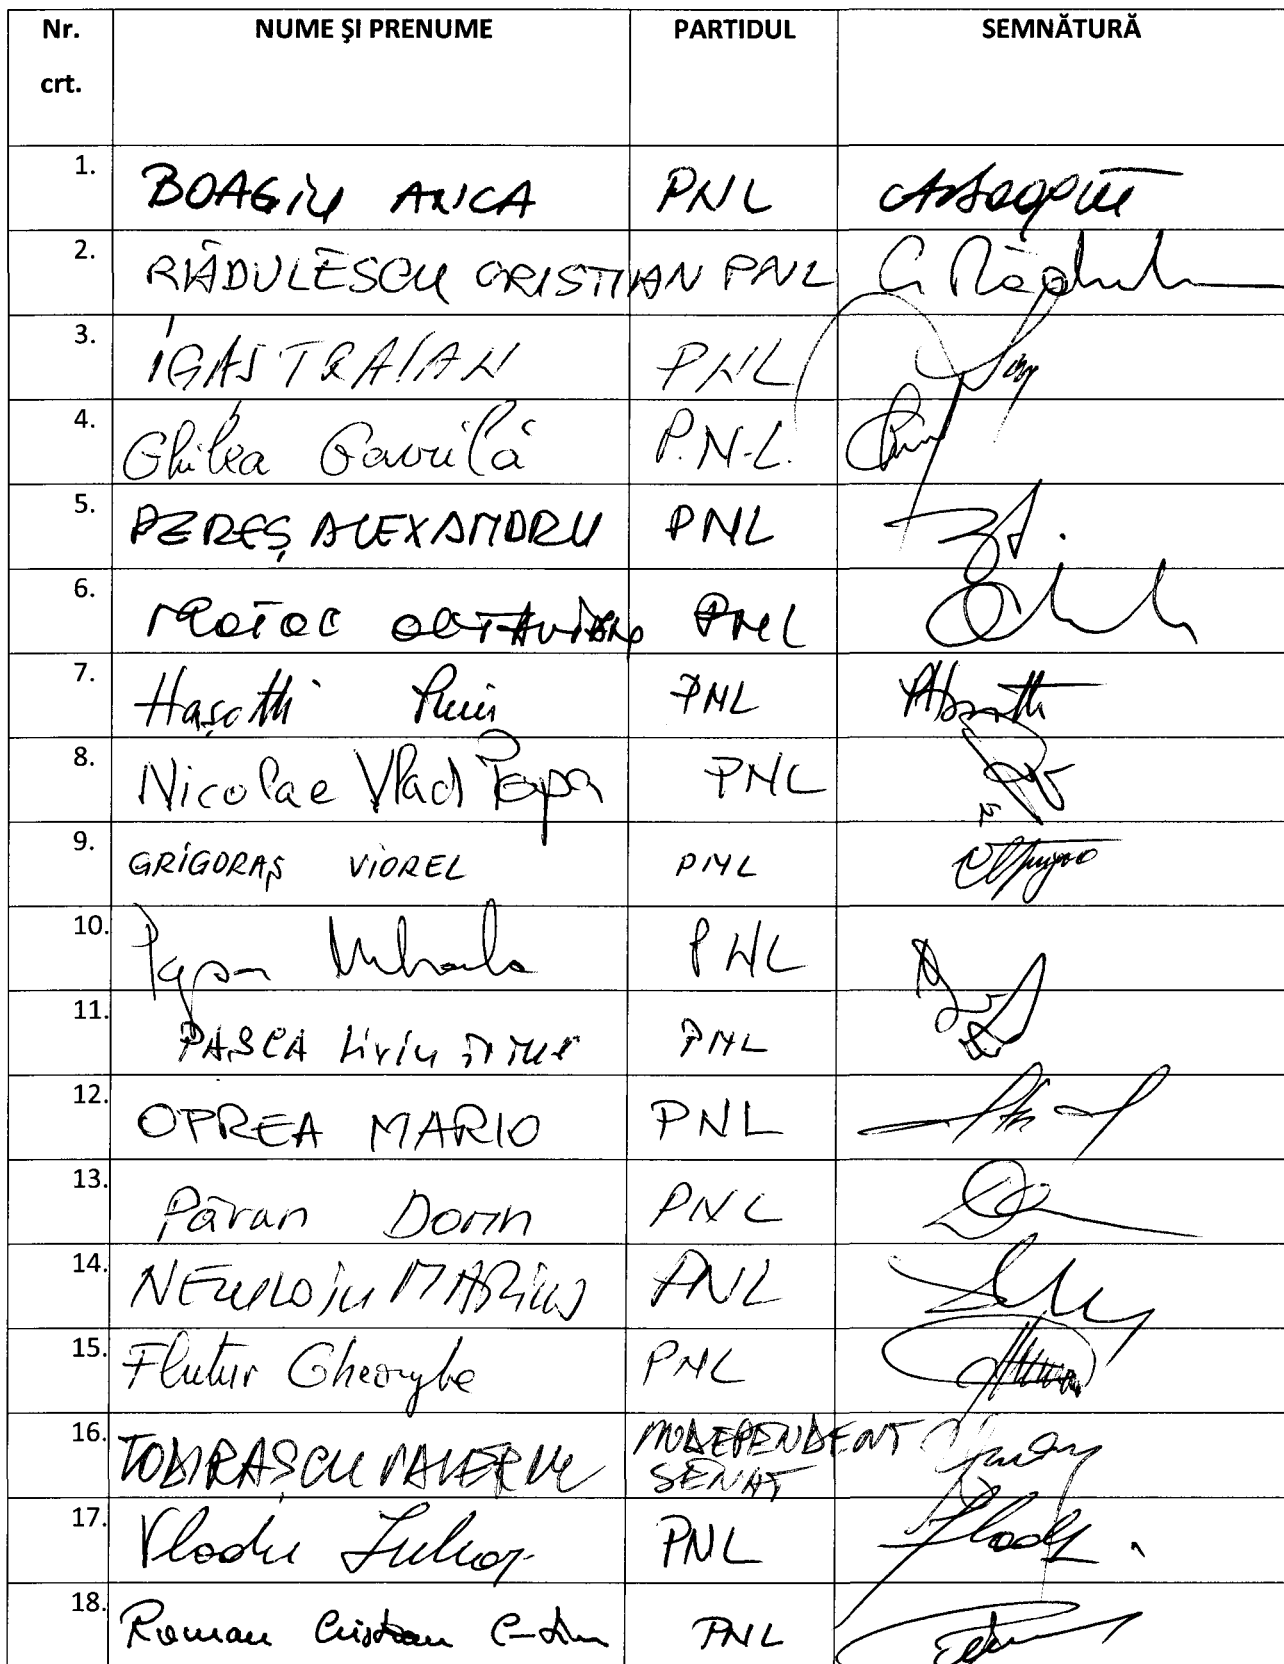 Nr. crt. NUME ŞI PRENUME PARTIDUL SEMNĂTURĂ
1. BOAGIU ANCA PNL
2. RĂDULESCU CRISTIAN PNL C. Rădul
3. IGAS TRAIAN PNL
4. Ghilea Gavrilă P.N.L.
5. PEREŞ ALEXANDRU PNL
6. MOTOC OCTAVIAN PNL
7. Haşotti Puiu PNL
8. Nicolae Vlad Popa PNL
9. GRIGORAŞ VIOREL PNL
10. Popa Mihaela PNL
11. PAŞCA Liviu TITUS PNL
12. OPREA MARIO PNL
13. Păran Dorin PNL
14. NECULOIU MARIUS PNL
15. Flutur Gheorghe PNL
16. TODIRAŞCU VALERIU INDEPENDENT
SENAT
17. Vladu Iulian PNL
18. Roman Cristian C-tin PNL